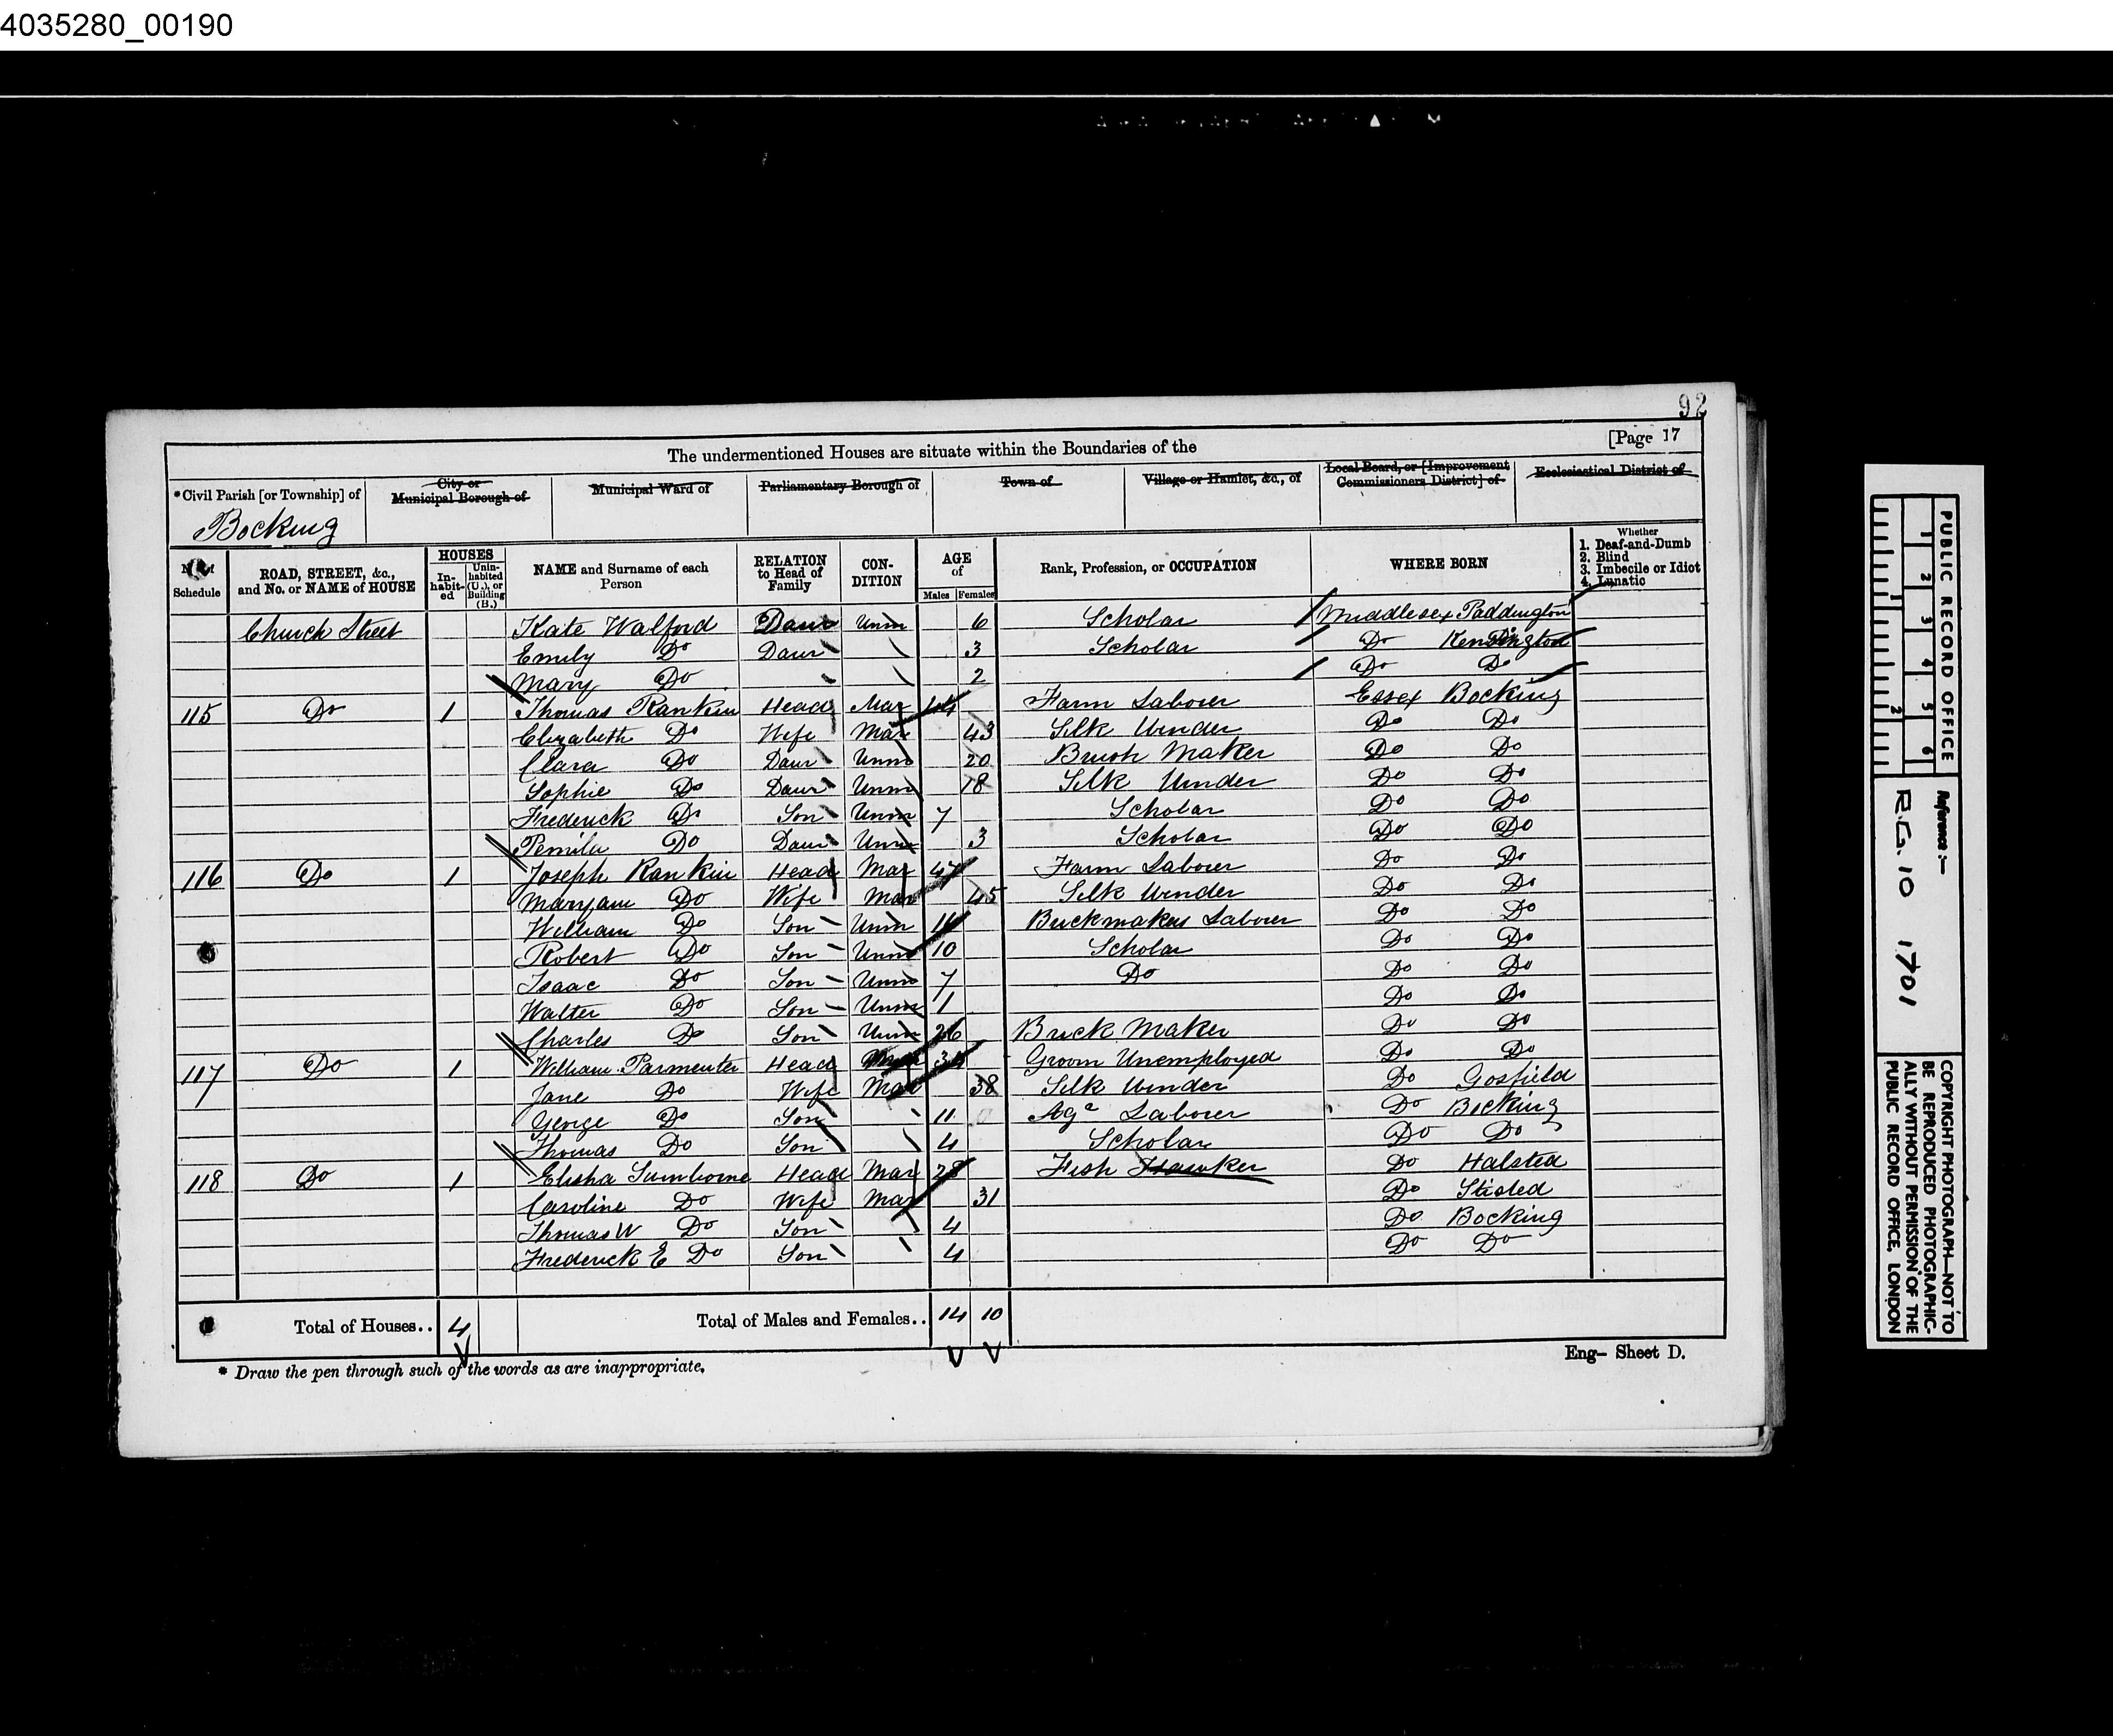 4035280_00190
92
[Page 17
The undermentioned Houses are situate within the Boundaries of the
*Civil Parish [or Township] of
City or Municipal Borough of
Municipal Ward of
Parliamentary Borough of
Town of
Village or Hamlet, &c., of
Local Board, or [Improvement Commissioners District] of
Ecclesiastical District of
Bocking
Schedule
ROAD, STREET, &c., and No. or NAME of HOUSE
HOUSES
In-habit-ed
Unin-habited (U.), or Building (B.)
NAME and Surname of each Person
RELATION to Head of Family
CON-DITION
AGE of
Males Females
Rank, Profession, or OCCUPATION
WHERE BORN
Whether
1. Deaf-and-Dumb
2. Blind
3. Imbecile or Idiot
4. Lunatic
Church Street Kate Walford Daur Unm 6 Scholar Middlesex Paddington
Emily Do Daur 3 Scholar Do Kensington
Mary Do 2 Do Do
115 Do 1 Thomas Rankin Head Mar 44 Farm Laborer Essex Bocking
Elizabeth Do Wife Mar 43 Silk Winder Do Do
Clara Do Daur Unm 20 Brush Maker Do Do
Sophie Do Daur Unm 18 Silk Winder Do Do
Frederick Do Son Unm 7 Scholar Do Do
Do Daur Unm 3 Scholar Do Do
116 Do 1 Joseph Rankin Head Mar 47 Farm Laborer Do Do
Maryann Do Wife Mar 45 Silk Winder Do Do
William Do Son Unm Brickmakers Laborer Do Do
Robert Do Son Unm 10 Scholar Do Do
Isaac Do Son Unm 7 Do Do Do
Walter Do Son Unm 1 Do Do
Charles Do Son Unm 26 Brick Maker Do Do
117 Do 1 William Parmenter Head Groom Unemployed Do Do
Jane Do Wife Mar 38 Silk Winder Do Gosfield
George Do Son 11 Agl Laborer Do Bocking
Thomas Do Son 4 Scholar Do Do
118 Do 1 Elisha Head Mar 28 Fish Hawker Do Halsted
Caroline Do Wife Mar 31 Do Stisted
Thomas W Do Son 4 Do Bocking
Frederick E Do Son 4 Do Do
Total of Houses.. 4 Total of Males and Females.. 14 10
* Draw the pen through such of the words as are inappropriate.
Eng- Sheet D.
PUBLIC RECORD OFFICE
1 2 3 4 5 6
1 2
Reference :-
R.G. 10 1701
COPYRIGHT PHOTOGRAPH—NOT TO
BE REPRODUCED PHOTOGRAPHIC-
ALLY WITHOUT PERMISSION OF THE
PUBLIC RECORD OFFICE, LONDON